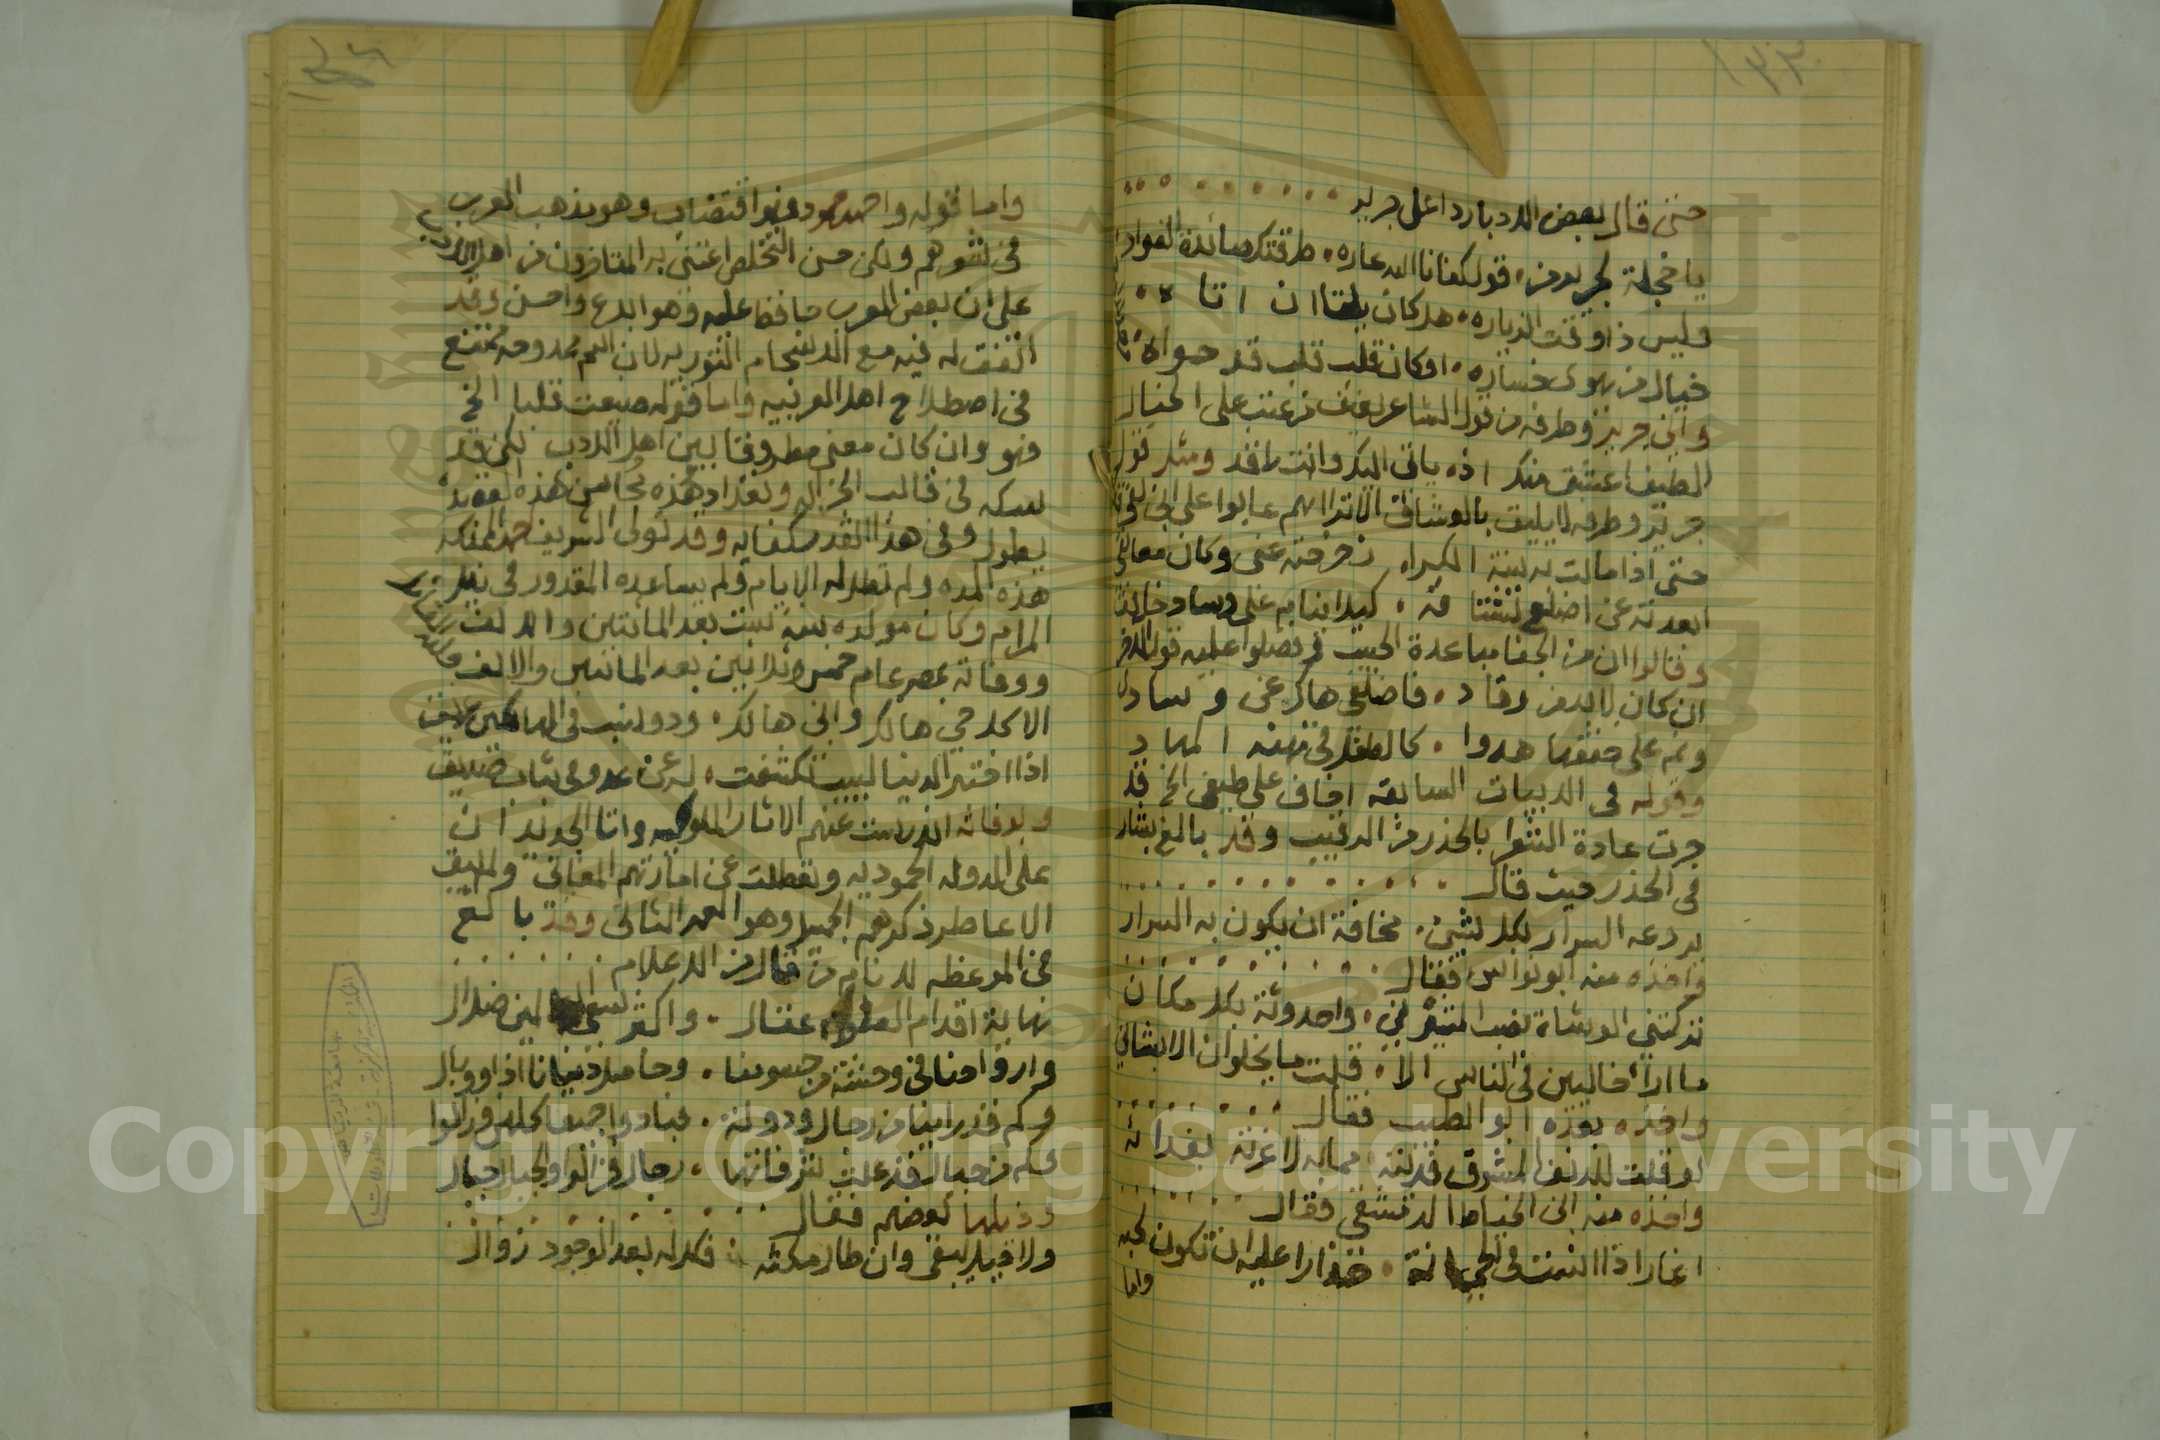 ١٣٣
حتى قال بعض الادبا رداعلى جرير
يا خجلة لجرير من قول كفانا الله عاره طرقتك صائدة الفواد
وليس ذا وقت الزياره هل كان يلقا ان اتا
خيال من يهوى خساره او كان قلب قلب قد حواه
واين جرير وطرفه من قول الشاعر عتب على الخيال
الطيف اعشق منك اذ ياتي اليك وانت لاقد ومثل قول
جرير وطرفه لا يليق بالعشاق الا ترا انهم عابوا على ابن بقى
حتى اذا مالت به سنة الكرا زحزحته عني وكان معانقي
ابعدته عن اضلع تشتاقه كيلا ينام على وساد خافق
وقالوا ان من الجفا مباعدة الحبيب قول
ان كان لا بد من رقاد فاضلعي هاك عن وساد
ونم على خفقها هدوا كالطفل في نهنه المهاد
وقوله في الابيات السابقه اخاف على طيفي الخ قد
جرت عادة الشعرا بالحذر من الرقيب وقد بالغ بشار
في الحذر حيث قال
يروعه السرار بكل شيء مخافة ان يكون به السرار
فاخذه منه ابو نواس فقال
تركتني الوشاة نصب المشيرين واحدوثة بكل مكان
ما ارا خاليين في الناس الا قلت ما يخلوان الا لشاني
واخذه بعده ابو الطيب فقال
لو قلت للدنف المشوق فديته مما به لاغرته بفدائه
واخذه منه ابن الخياط الدمشقي فقال
اغار اذا انست في الحي انة حذارا عليه ان تكون لحبه
واما
١٣٤
واما قوله واحمد محمود فهو اقتضاب وهو مذهب العرب
في شعرهم ولكن حسن التخلص اعتنى به المتاخرون من اهل الادب
على ان بعض العرب حافظ عليه وهو ابدع واحسن وقد
اتفقت له فيه مع الانسجام التوريه لان اسم ممدوحه ممتنع
في اصطلاح اهل العربيه واما قوله ضيعت قلبا الخ
فهو وان كان معنى مطروقا بين اهل الادب لكن قد
سبكه في قالب الجزاله وتعداد هذه محاسن هذه القصيده
يطول وفي هذا القدر كفايه وقد تولى الشريف احمد المذكور
هذه المده ولم تطل له الايام ولم يساعده المقدور في نيل
المرام وكان مولده سنة ست بعد المائتين والالف
ووفاته بمصر عام خمس وثلاثين بعد المائتين والالف
الا كل حي هالك وابن هالك وذو نسب في الهالكين عريق
اذا اختبر الدنيا لبيب تكشفت له عن عدو في ثياب صديق
وبوفاته اندرست عنهم الاثار الملوكيه
على الدوله الحموديه وتعطلت عن امارتهم المغاني ولم يبق
الا عاطر ذكرهم الجميل وهو العمر الثاني وقد بالغ
في الموعظه للانام من قال من الاعلام
نهاية اقدام العقول عقال واكثر سعي العالمين ضلال
وارواحنا في وحشة من جسومنا وحاصل دنيانا اذا ووبال
وكم قد راينا من رجال ودولة فبادوا جميعا كلهم وزالوا
وكم من جبال قد علت شرفاتها رجال فزالوا والجبال جبال
وذيلها بعضهم فقال
ولا قيل يبقى وان طال مكثه فكل له بعد الوجود زوال
Copyright © King Saud University